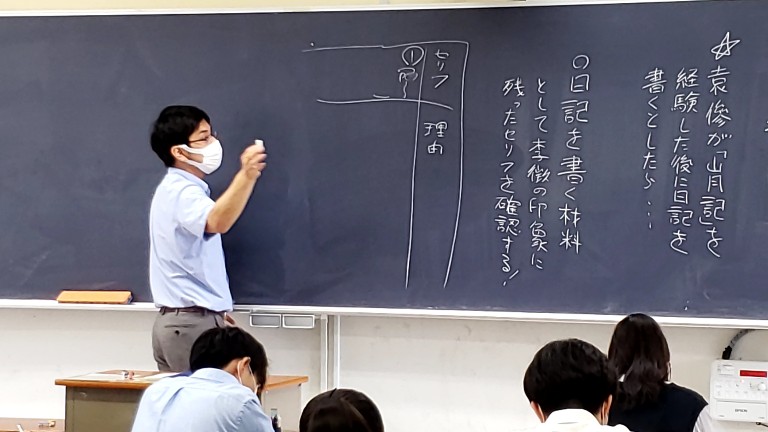 ☆袁傪が「山月記」を
経験した後に日記を
書くとしたら・・・
○日記を書く材料
として李徴の印象に
残ったセリフを確認する!
セリフ
理由
①
EPSON